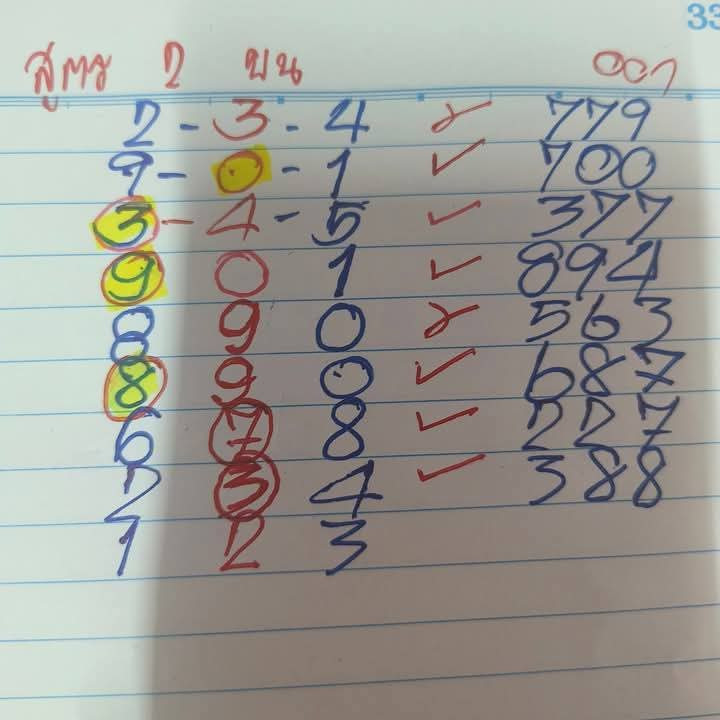 33
สูตร 2 บน ออก
2 - 3 - 4 779
9 - 0 - 1 700
3 - 4 - 5 377
9 0 1 894
8 9 0 563
8 9 0 687
6 7 8 227
2 3 4 388
1 2 3